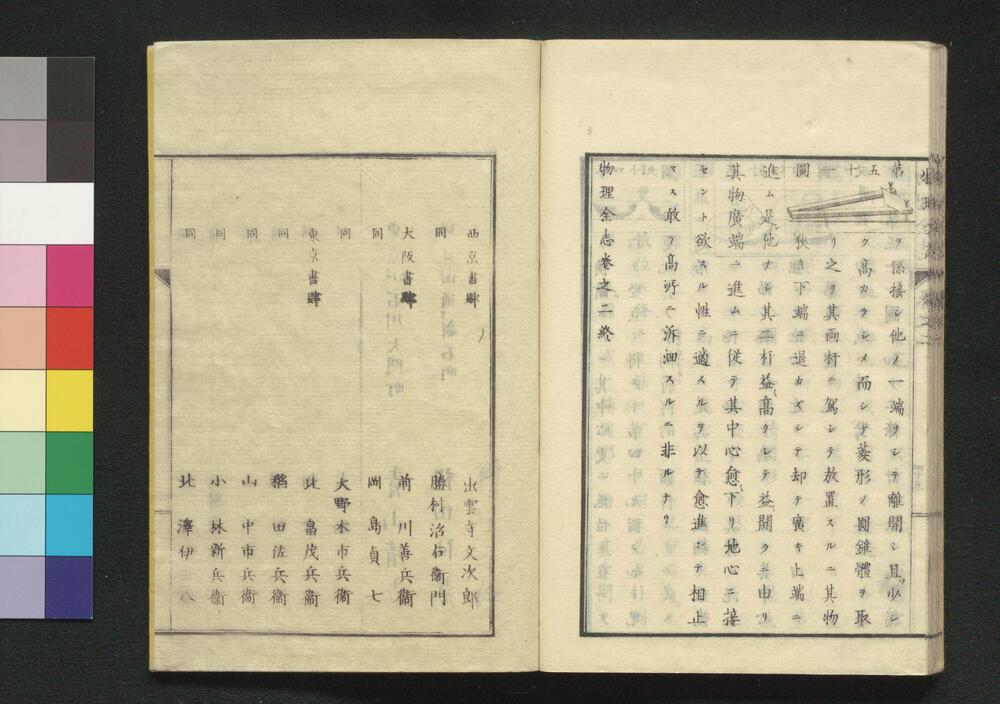 第
五
十
一
圖
ヲ係接シ他ノ一端ヲシテ離開シ且ツ少シ
ク高カラシメ而シテ菱形ノ圓錐體ヲ取
リ之ヲ其兩杆ニ駕シテ放置スルニ其物
狹キ下端ニ退カズシテ却テ廣キ上端ニ
進ム是他ナシ其兩杆益高クシテ益開クニ由リ
其物廣端ニ進ムニ從テ其中心愈下リ地心ニ接
セント欲スル性ニ適スルヲ以テ愈進ミテ相止
マス敢テ高所ニ泝洄スルニ非ルナリ
物理全志卷之二終
西京書肆 出雲寺文次郎
同 勝村治右衞門
大阪書肆 前川善兵衞
同 岡島貞七
同 大野木市兵衞
東京書肆 北畠茂兵衞
同 稻田佐兵衞
同 山中市兵衞
同 小林新兵衞
同 北澤伊八